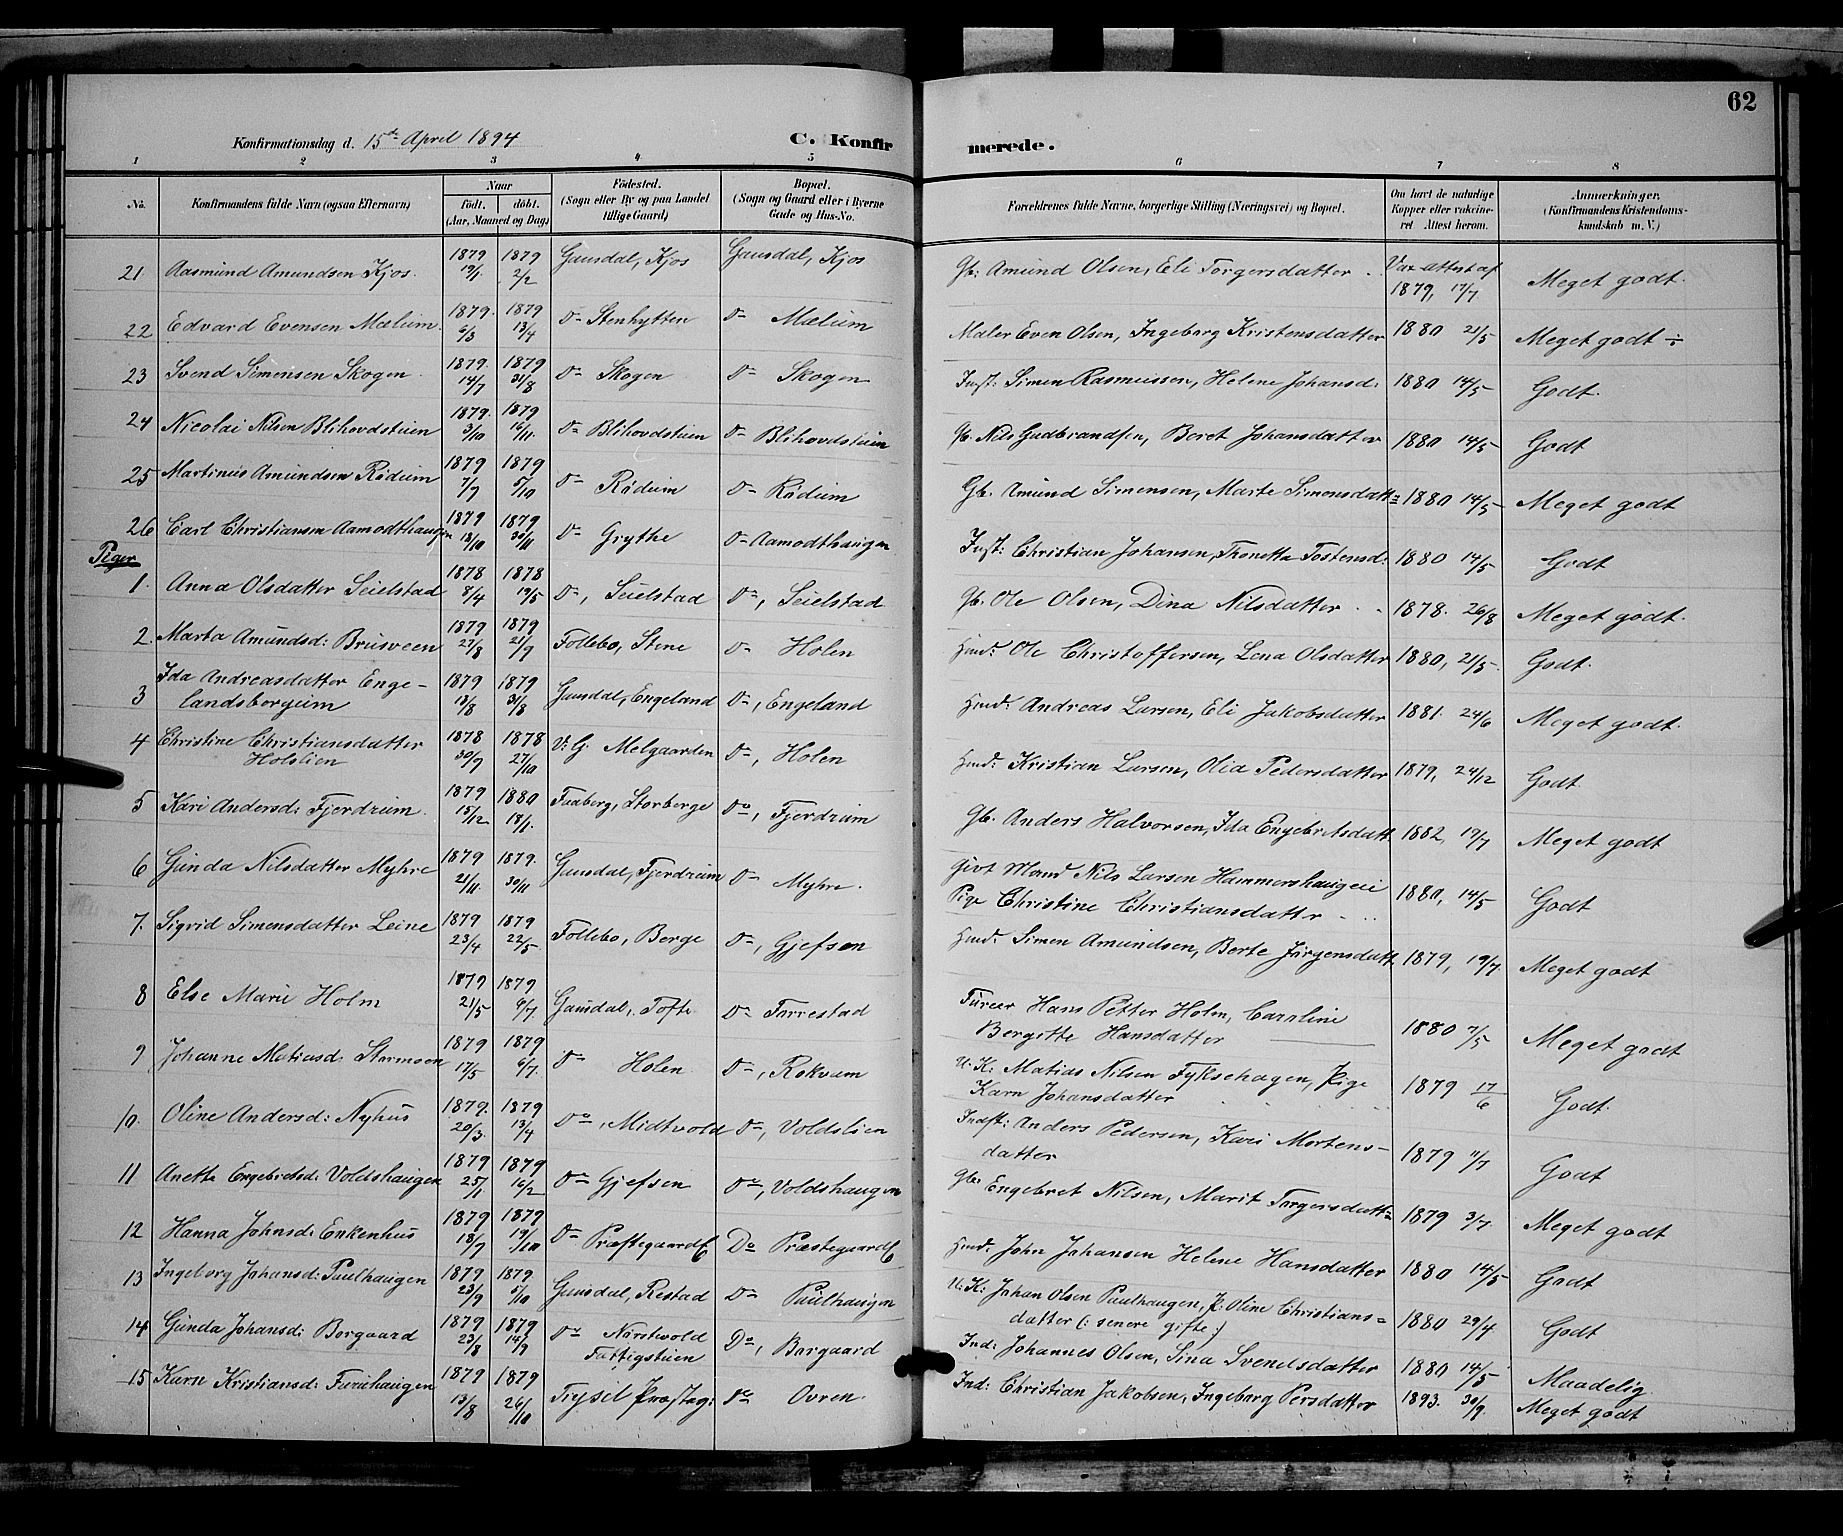 62
Konfirmationsdag d. 15de April 1894 C. Konfirmerede.
1 2 3 4 5 6 7 8
No. Konfirmandens fulde Navn (ogsaa Efternavn) Naar födt. döbt. (Aar, Maaned og Dag) Födested. (Sogn eller By og paa Landet tillige Gaard) Bopæl. (Sogn og Gaard eller i Byerne Gade og Hus-No. Forældrenes fulde Navne, borgerlige Stilling (Næringsvei) og Bopæl. Om havt de naturlige Kopper eller vaccineret Attest herom. Anmærkninger. (Konfirmandens Kristendomskundskab m. V.)
21 Aasmund Amundsen Kjos. 1879 19/1 1879 2/2 Gausdal, Kjos Gausdal, Kjos Gb: Amund Olsen, Eli Torgersdatter Vax attest af 1879, 17/7 Meget godt.
22 Edvard Evensen Mælum. 1879. 6/3 1879 13/4 Do Stenhytten Do Mælum Maler Even Olsen, Ingeborg Kristensdatter 1880 21/5 Meget godt ÷
23 Svend Simensen Skogen 1879. 14/7 1879 31/8 Do Skogen Do Skogen Inst: Simen Rasmussen, Helene Johansd: 1880 14/5 Godt.
24 Nicolai Nilsen Blihovdstuen 1879. 3/10 1879 16/11. Do Blihovdstuen Do Blihovdstuen Gb. Nils Gudbrandsen, Beret Johansdatter 1880 14/5 Godt
25 Martinus Amundsen Rødum 1879 7/9 1879 5/10 Do Rødum Do Rødum Gb. Amund Simensen, Marte Simensdatt= 1880 14/5 Meget godt
26 Carl Christiansen Aamodthaugen 1879 18/10 1879 30/11 Do Grythe Do Aamodthaugen Inst: Christian Johansen, Thonetta Tostensd: 1880 14/5 Godt
Piger
1. Anna Olsdatter Seielstad 1878 8/4 1878 19/5 Do, Seielstad Do, Seielstad Gb. Ole Olsen, Dina Nilsdatter 1878. 26/8 Meget godt.
2. Marta Amundsd: Brusveen 1879 27/8 1879 21/9 Follebo, Stene Do Holen Husd. Ole Christoffersen, Lena Olsdatter 1880, 21/5 Godt.
3 Ida Andreasdatter Enge-
landsborgum 1879 13/8 1879 31/8 Gausdal, Engeland Do, Engeland Husd. Andreas Larsen, Eli Jakobsdatter 1881. 24/6 Meget godt.
4 Christine Christiansdatter
Holslien 1878 30/7 1878 27/10 V: G. Melgaarden Do, Holen Husd. Kristian Larsen, Olia Pedersdatter 1879, 24/12 Godt.
5 Kari Andersd: Fjerdrum. 1879 15/12 1880 18/1. Faaberg, Storberge Do, Fjerdrum Gb. Anders Halvorsen, Ida Engebretsdatt. 1882, 19/7 Meget godt
6 Gunda Nilsdatter Myhre 1879 21/11. 1879. 30/11 Gausdal, Fjerdrum Do Myhre. Givt Mand Nils Larsen Hammershaugen
Pige Christine Christiansdatter 1880, 14/5 Godt
7. Sigrid Simensdatter Leine 1879 23/4 1879 22/5 Follebo, Berge Do, Gjefsen Husd. Simen Amundsen, Berte Jørgensdatt. 1879, 19/7. Meget godt
8 Else Marie Holm 1879 21/5 1879 6/7 Gausdal, Tofte Do Forrestad Fureer Hans Petter Holm, Caroline
Bergitte Hansdatter 1880 7/5 Meget godt
9 Johanne Matiasd: Stormoen 1879 17/5 1879 6/7. Do Holen Do, Rokvam U: K: Matias Nilsen Fyksehagen, Pige
Karn Johansdatter 1879 17/6 Godt.
10. Oline Andersd: Nyhus 1879. 20/3. 1879 13/4 Do, Midtvold Do, Voldslien Indst: Anders Pedersen, Kari Mortens-
datter 1879 11/7 Godt
11 Anette Engebretsd: Voldshaugen 1879 25/1 1879 16/2 Do Gjefsen Do, Voldshaugen Gb. Engebret Nilsen, Marit Torgersdatt= 1879 3/7. Meget godt
12 Hanna Johnsd: Enkenhus 1879 18/7 1879 19/10 Do Præstegaard Do Præstegaard Husd. John Johansen Helene Hansdatter 1880 14/5 Godt
13 Ingeborg Johansd: Paulhaugen 1879 23/9 1879. 5/10 Gausdal, Restad Do Paulhaugen U: K: Johan Olsen Paulhaugen, P: Oline Christians=
datter (: senere gifte :) 1880 29/4 Godt
14 Gunda Johansd: Borgaard 1879 23/8 1879 14/9 Do Nørstvold Fattigstuen Do, Borgaard Ind: Johannes Olsen, Sina Svendsdatter 1880 14/5 Maadelig
15 Karn Kristiansd: Furuhaugen 1879 13/8 1879 26/10 Trysil Præsteg: Do Ovren Ind: Christian Jakobsen, Ingeborg Persdatter 1893. 30/9. Meget godt